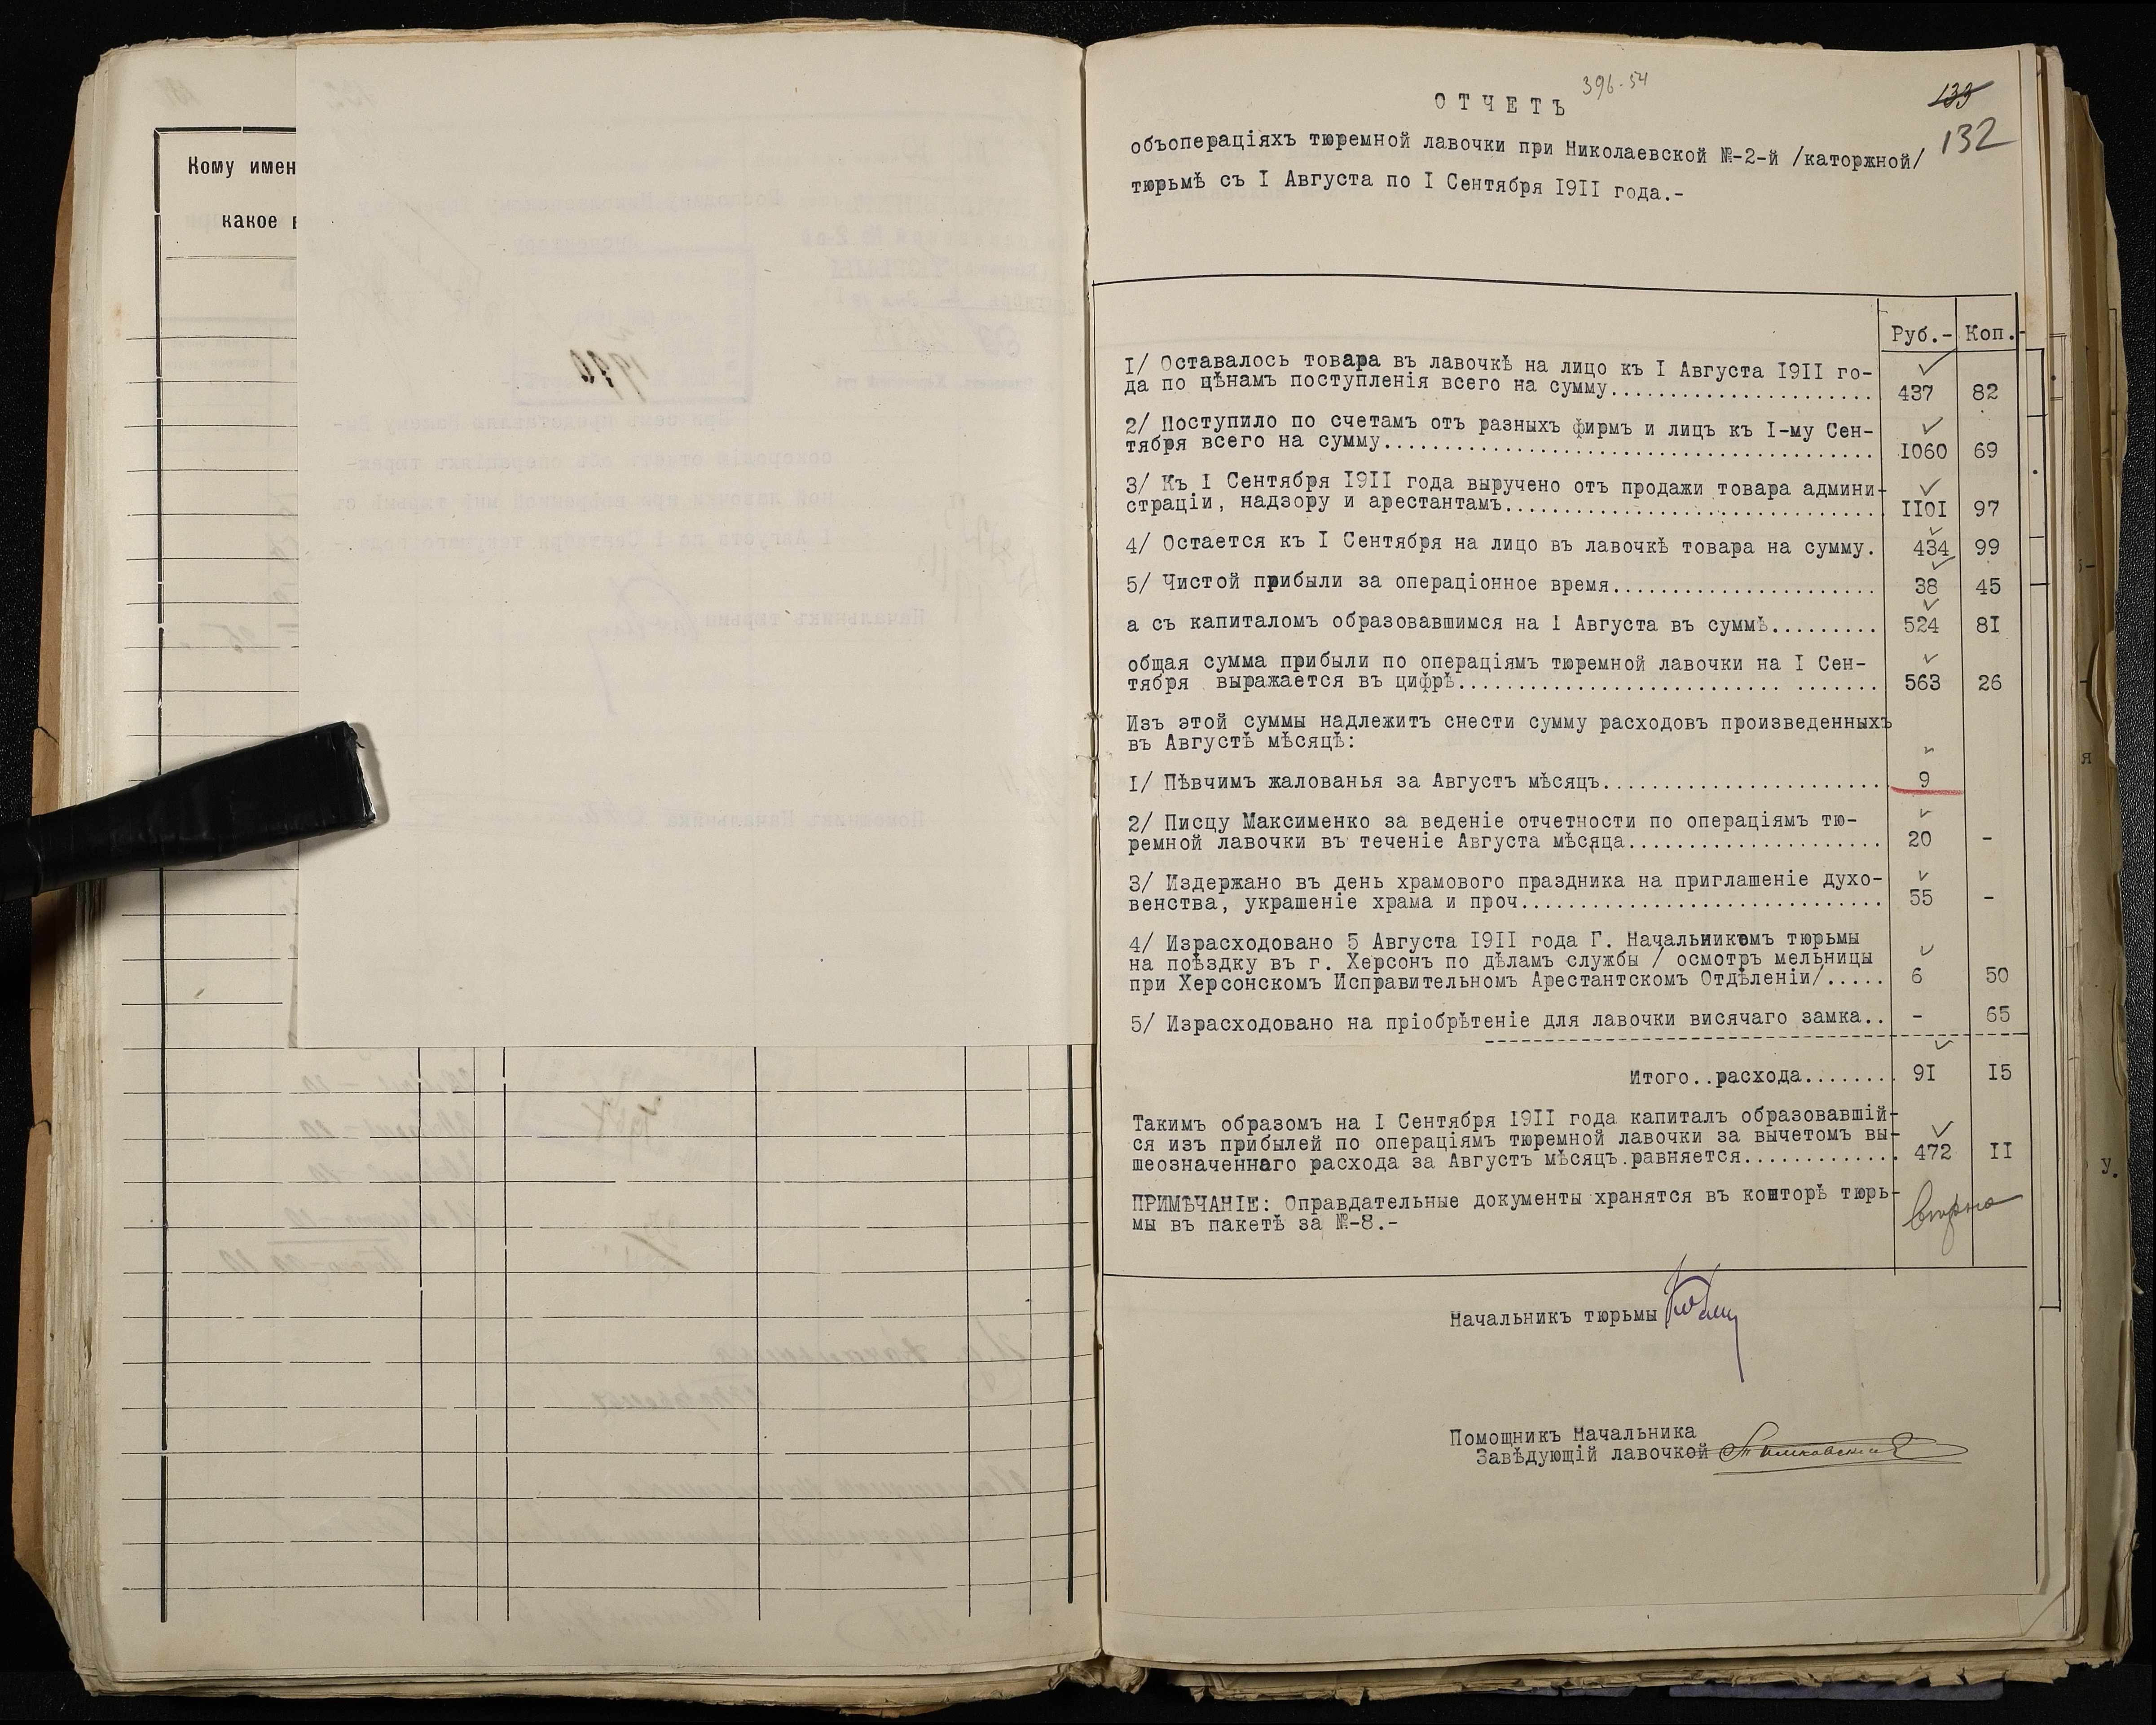 Кому имен
какое в
1990
396-54
133
132
ОТЧЕТЪ
объопераціяхъ тюремной лавочки при Николаевской №-2-й /каторжной/
тюрьмѣ съ I Августа по I Сентября I9II года.-
Руб.- Коп.-
I/ Оставалось товара въ лавочкѣ на лицо къ I Августа I9II го-
да по цѣнамъ поступленія всего на сумму...................... 437 82
2/ Поступило по счетамъ отъ разныхъ фирмъ и лицъ къ I-му Сен-
тября всего на сумму......................................... I060 69
3/ Къ I Сентября I9II года выручено отъ продажи товара админи-
страціи, надзору и арестантамъ............................... II0I 97
4/ Остается къ I Сентября на лицо въ лавочкѣ товара на сумму. 434 99
5/ Чистой прибыли за операціонное время...................... 38 45
а съ капиталомъ образовавшимся на I Августа въ суммѣ......... 524 8I
общая сумма прибыли по операціямъ тюремной лавочки на I Сен-
тября выражается въ цифрѣ.......................... ....... 563 26
Изъ этой суммы надлежитъ снести сумму расходовъ произведенныхъ
въ Августѣ мѣсяцѣ:
I/ Пѣвчимъ жалованья за Августъ мѣсяцъ....................... 9
2/ Писцу Максименко за веденіе отчетности по операціямъ тю-
ремной лавочки въ теченіе Августа мѣсяца..................... 20 -
3/ Издержано въ день храмового праздника на приглашеніе духо-
венства, украшеніе храма и проч.............................. 55 -
4/ Израсходовано 5 Августа I9II года Г. Начальникомъ тюрьмы
на поѣздку въ г. Херсонъ по дѣламъ службы / осмотръ мельницы
при Херсонскомъ Исправительномъ Арестантскомъ Отдѣленіи/..... 6 50
5/ Израсходовано на пріобрѣтеніе для лавочки висячаго замка.. - 65
Итого..расхода........ 9I I5
Такимъ образомъ на I Сентября I9II года капиталъ образовавшій-
ся изъ прибылей по операціямъ тюремной лавочки за вычетомъ вы-
шеозначеннаго расхода за Августъ мѣсяцъ равняется............. 472 II
ПРИМѢЧАНІЕ: Оправдательные документы хранятся въ конторѣ тюрь-
мы въ пакетѣ за №-8.-
Вѣрно
Начальникъ тюрьмы
Помощникъ Начальника
Завѣдующій лавочкой